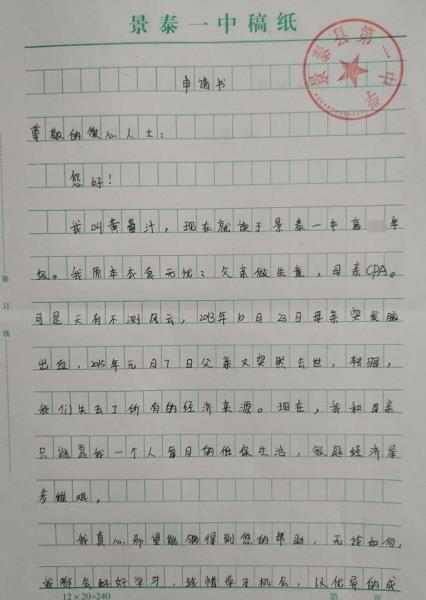 景泰一中稿纸
景泰县第一中学
申请书
尊敬的爱心人士：
您好！
我叫黄蕾汁，现在就读于景泰一中高 年
级。我原本衣食无忧：父亲做生意，母亲CPA。
可是天有不测风云，2013年10月23日母亲突发脑
出血，2015年元月7日父亲又突然去世，转眼，
我们失去了所有的经济来源。现在，我和母亲
只能靠我一个人每月的低保生活，家庭经济举
步维艰。
我真心希望能够得到您的帮助，无论如何，
我都会好好学习，珍惜学习机会，以优异的成
装订线
12×20=240
第 页